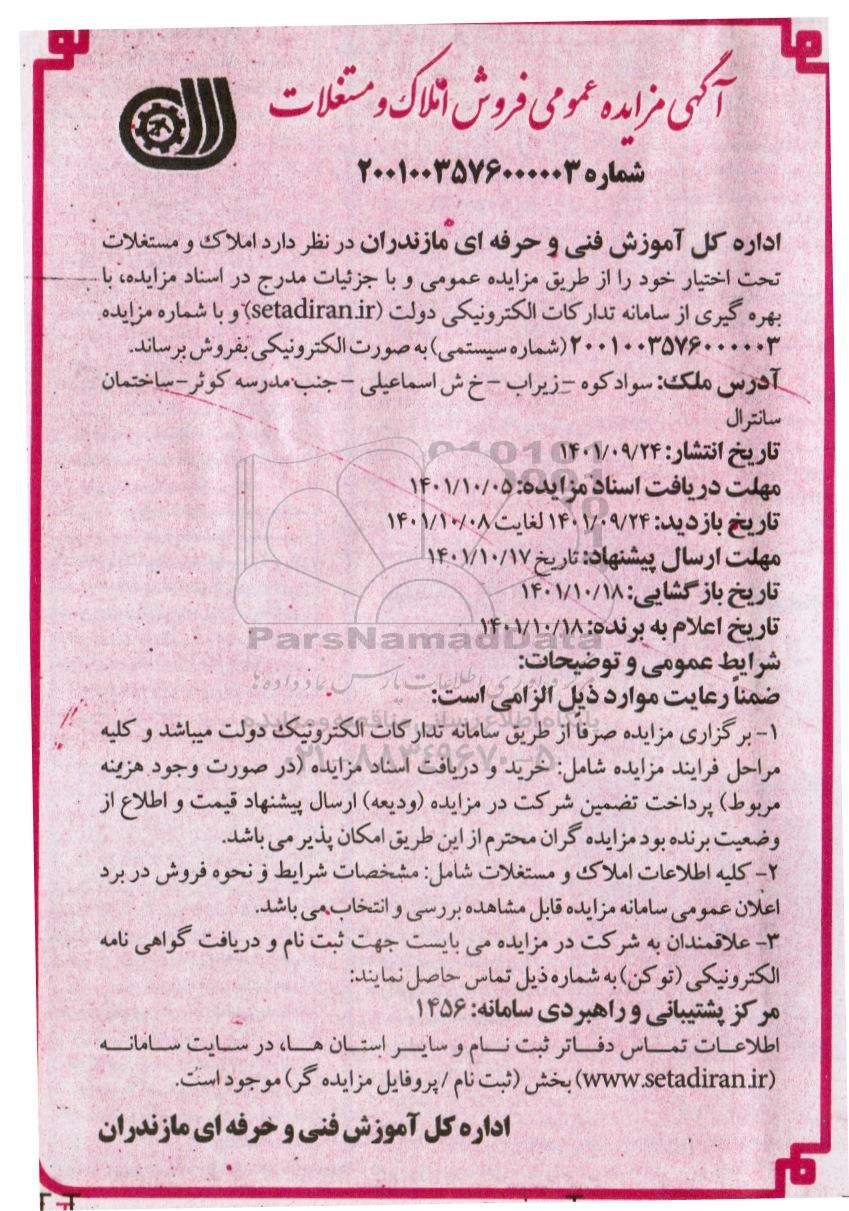 آگهی مزایده عمومی فروش املاک و مستغلات
شماره ۲۰۰۱۰۰۳۵۷۶۰۰۰۰۰۳
اداره کل آموزش فنی و حرفه ای مازندران در نظر دارد املاک و مستغلات
تحت اختیار خود را از طریق مزایده عمومی و با جزئیات مدرج در اسناد مزایده، با
بهره گیری از سامانه تدارکات الکترونیکی دولت (setadiran.ir) و با شماره مزایده
۲۰۰۱۰۰۳۵۷۶۰۰۰۰۰۳ (شماره سیستمی) به صورت الکترونیکی بفروش برساند.
آدرس ملک: سوادکوه - زیراب - خ ش اسماعیلی - جنب مدرسه کوثر - ساختمان
سانترال
تاریخ انتشار: ۱۴۰۱/۰۹/۲۴
مهلت دریافت اسناد مزایده: ۱۴۰۱/۱۰/۰۵
تاریخ بازدید: ۱۴۰۱/۰۹/۲۴ لغایت ۱۴۰۱/۱۰/۰۸
مهلت ارسال پیشنهاد: تاریخ ۱۴۰۱/۱۰/۱۷
تاریخ بازگشایی: ۱۴۰۱/۱۰/۱۸
تاریخ اعلام به برنده: ۱۴۰۱/۱۰/۱۸
ParsNamadData
شرایط عمومی و توضیحات:
ضمناً رعایت موارد ذیل الزامی است:
۱- برگزاری مزایده صرفا از طریق سامانه تدارکات الکترونیک دولت میباشد و کلیه
مراحل فرایند مزایده شامل: خرید و دریافت اسناد مزایده (در صورت وجود هزینه
۰۲۱-۸۸۳۴۹۶۷۰-۵
مربوط) پرداخت تضمین شرکت در مزایده (ودیعه) ارسال پیشنهاد قیمت و اطلاع از
وضعیت برنده بود مزایده گران محترم از این طریق امکان پذیر می باشد.
۲- کلیه اطلاعات املاک و مستغلات شامل: مشخصات شرایط و نحوه فروش در برد
اعلان عمومی سامانه مزایده قابل مشاهده بررسی و انتخاب می باشد.
۳- علاقمندان به شرکت در مزایده می بایست جهت ثبت نام و دریافت گواهی نامه
الکترونیکی (توکن) به شماره ذیل تماس حاصل نمایند:
مرکز پشتیبانی و راهبردی سامانه: ۱۴۵۶
اطلاعات تماس دفاتر ثبت نام و سایر استان ها، در سایت سامانه
(www.setadiran.ir) بخش (ثبت نام / پروفایل مزایده گر) موجود است.
اداره کل آموزش فنی و حرفه ای مازندران